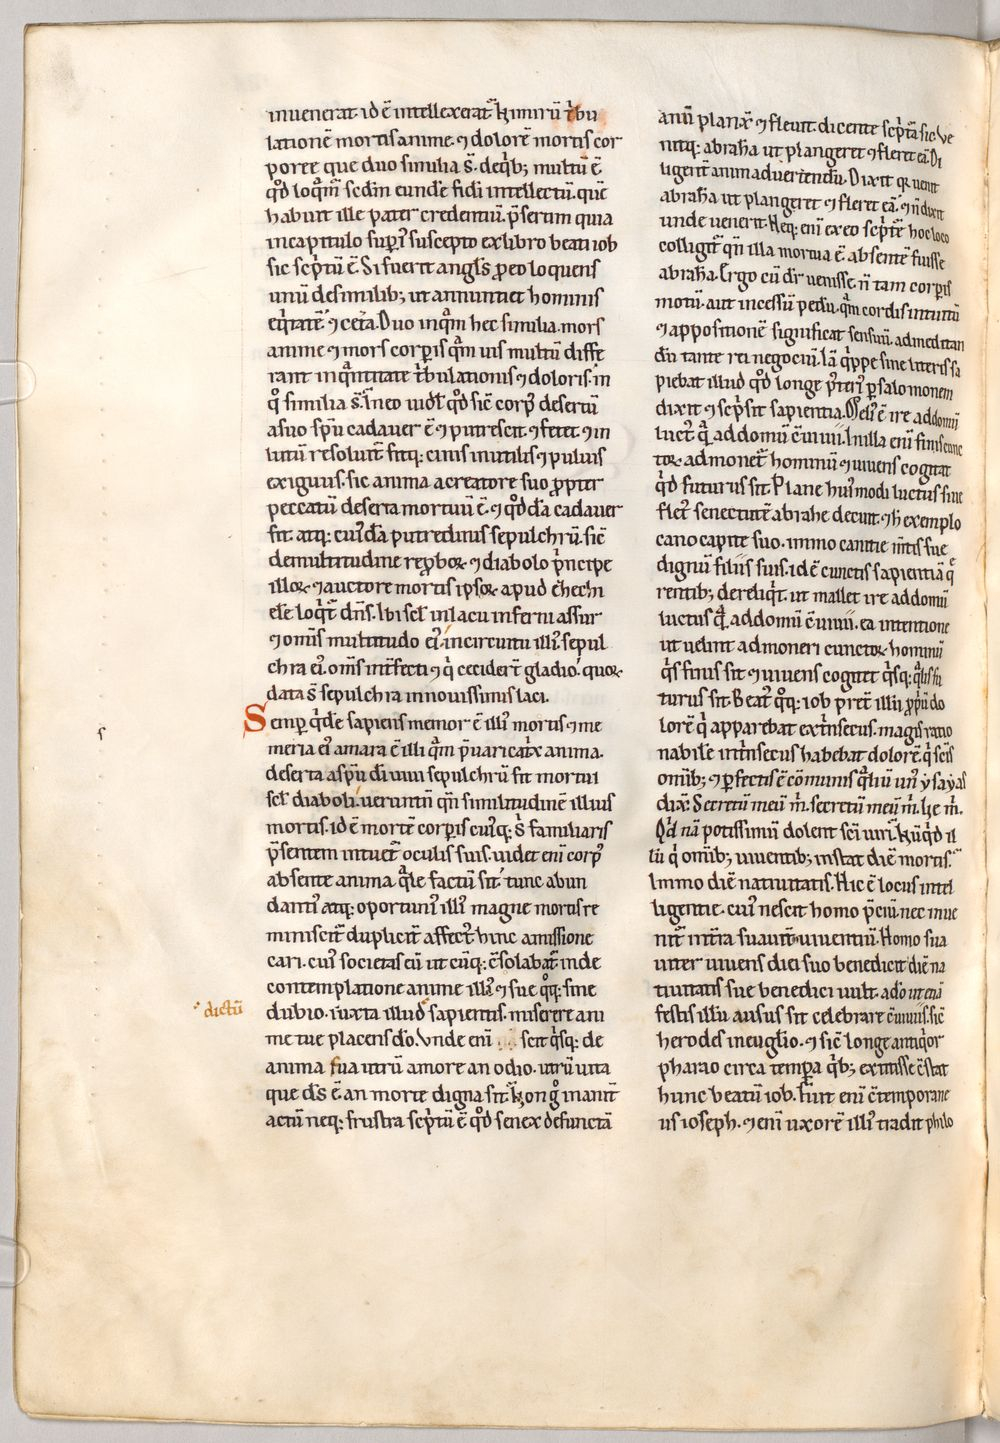 inuenerat. id ē intellexerat̄ h̄. nimirū t̄bu
lationē mortis anime. ⁊ dolorē mortis cor
poree que duo similia s̄. deq̄b; multū ē.
qd̄ loqm̄ scd̄m eundē fidi intellectū. quē
habuit ille pater credentiū. p̄sertim quia
in capitulo supi᷒ suscepto ex libro beati iob
sic scp̄tū ē. Si fuerit angl̄s ꝓ eo loquens
unū de similib; ut annuntiet hominis
eq̄tatē ⁊ cet̄a. Duo inqm̄ hec similia. mors
anime ⁊ mors corpis quā uis multū diffe
rant in q̄ntitate t̄bulationis ⁊ doloris. in
qo similia s̄. In eo uidl̄ qd̄ sic̄ corp᷒ desertū
a suo spū cadauer ē ⁊ putrescit. ⁊ fetet ⁊ in
lutū resoluit̄ fitq: cinis inutilis ⁊ puluis
exiguus. sic anima a creatore suo ꝓpter
peccatū deserta mortuū ē. ⁊ qd̄dā cadauer
fit. atq: cui᷒dā putredinis sepulchrū. sic̄
de multitudine reꝓboꝝ ⁊ diabolo p̄ncipe
illoꝝ ⁊ auctore mortis ipsoꝝ apud ēhechi
ele loq̄t̄ dn̄s. Ibi scl̄ in lacu inferni assur
⁊ omīs multitudo ei᷒. in circuitu illi᷒ sepul
chra ei᷒. om̄s int̄fecti ⁊ q̄ cecider̄t gladio. quoꝝ
data s̄ sepulchra in nouissimis laci.
Semp q̄dē sapiens memor ē illi᷒ mortis ⁊ me
moria ei᷒ amara ē illi quā p̄uaricat̄x anima.
deserta a spū dī uiui sepulchrū fit mortui
scl̄ diaboli. ueruntn̄ qn̄ similitudinē illius
mortis. id ē mortē corpis cui᷒q: s̄ familiaris
p̄sentem intuet̄ oculis suis. uidet enī corp᷒
absente anima q̄le factū sit. tunc abun
danti᷒ atq: oportuni᷒ illi᷒ magne mortis re
miniscit̄ duplicit̄ affect᷒ hinc amissione
cari. cui᷒ societas eū ut cūq: c̄solabat̄ inde
contemplatione anime illi᷒ ⁊ sue qoq: sine
dubio. iuxta illud sapientis. miserere ani
dictū
me tue placens dō. Vnde enī scit q̄sq: de
anima sua utrū amore an odio. utrū uita
que ds̄ ē an morte digna sit. h̄ non go inanit̄
actū neq: frustra scp̄tū ē qd̄ senex defunctā
anū planx̄ ⁊ fleuit. dicente scp̄ta sic. Ve
nitq: abrahā ut plangeret ⁊ fleret eā. Di
ligent̄ animaduertendū. Dixit q̄ uenit
abrahā ut plangeret ⁊ fleret eā. ⁊ n̄ dixit
unde uenerit. Neq: enī ex eo scp̄t̄ē hoc loco
colligit̄ qn̄ illa mortua ē. absentē fuisse
abrahā. Ergo cū dr̄ uenisse. n̄ tam corpis
motū. aut incessū pedū. quā cordis intuitū
⁊ appositionē significat sensuū. ad meditan
dū tante rei negociū. Iā q̄ppe sine litteris sa
piebat illud qd̄ longe p̄teri᷒ p salomonem
dixit ⁊ scp̄sit sapientia. Meli᷒ ē ire ad domū
luct᷒ q̄ ad domū c̄uiuii. In illa enī finis cunc
toꝝ admonet̄ hominū ⁊ uiuens cogitat
q̄d futurus sit. Plane hui᷒modi luctus siue
flet᷒ senectutē abrahe decuit. ⁊ h̄ exemplo
cano capite suo. immo canitie m̄tis sue
dignū filiis suis. id ē cunctis sapientiā q̄
rentib; dereliq̄t. ut mallet ire ad domū
luctus q̄ ad domū c̄uiuii. ea intentione
ut uelint admoneri cunctoꝝ hominū
q̄s finis sit ⁊ uiuens cogitet q̄sq: q̄lis fu
turus sit. Beat᷒ qoq: iob pret̄ illū ꝓpriū do
lorē q̄ apparebat ext̄nsecus. magis ratio
nabilē int̄nsecus habebat dolorē. q̄ scīs
omīb; ⁊ pfectis ē cōmunis q̄liū un᷒ ysayas
dix̄. Secretū meū m̄. secretū meū m̄. ue m̄.
Qd̄ nā potissimū dolent scī uiri. h̄ q̄d il
lū q̄ omīb; uiuentib; instat diē mortis.
Immo diē natiuitatis. Hic ē locus intel
ligentie. cui᷒ nescit homo p̄ciū. nec inue
nit̄ in t̄ra suauit̄ uiuentiū. Homo sua
uiter uiuens diei suo benedicit diē na
tiuitatis sue benedici uult. adō ut enā
festis illū ausus sit celebrare c̄uiuiis. sic̄
herodes in euglīo. ⁊ sic̄ longe antiq̄or
pharao circa tempa q̄b; extitisse c̄stat
hunc beatū iob. fuit enī c̄temporane
us ioseph. ⁊ enī uxorē illi᷒ tradit philo